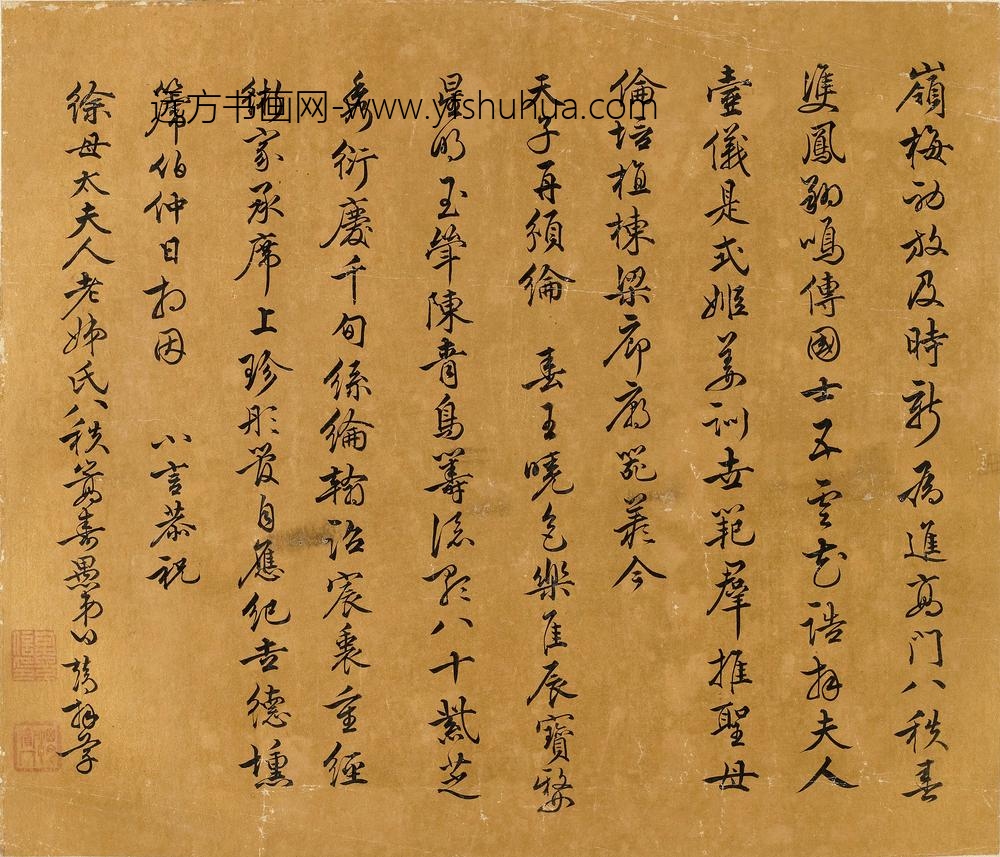 嶺梅初放及時新為進高門八秩春
雙鳳翱鳴傳國士五雲花誥拜夫人
壼儀是式姬姜訓世範羣推聖母
倫培植棟梁廊廟器羨今
天子再頒綸 春王曉色樂佳辰寶婺
星明玉筆陳青鳥籌添八十紫芝
秀衍慶千旬絲綸翰詔宸衷重經
術家承席上珍彤管自應紀吉德壎
篪伯仲日相因 小言恭祝
徐母太夫人老姊氏八秩喬壽愚弟拜草
远方书画网-www.yfshuhua.com